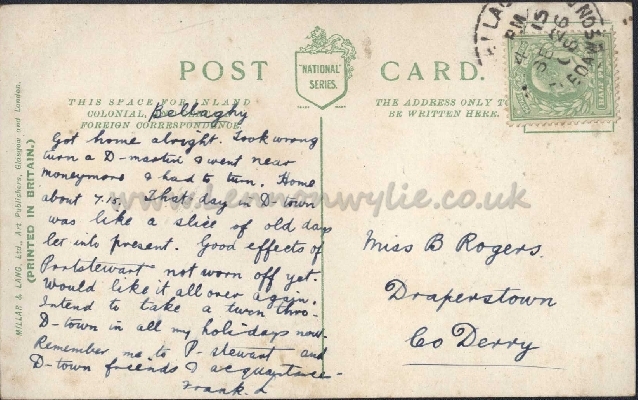 POST CARD.
"NATIONAL"
SERIES.
TRADE MARK
THIS SPACE FOR INLAND
COLONIAL, AND
FOREIGN CORRESPONDENCE.
THE ADDRESS ONLY TO
BE WRITTEN HERE.
MILLAR & LANG, Ltd., Art Publishers, Glasgow and London.
(PRINTED IN BRITAIN.)
Bellaghy
Got home alright. Took wrong
turn a D-martin & went near
moneymore & had to turn. Home
about 7.15. That day in D-town
was like a slice of old days
let into present. Good effects of
Portstewart not worn off yet.
Would like it all over again.
Intend to take a turn thro-
D-town in all my holidays now.
Remember me to P-stewart and
D-town friends & acquaintance-
Frank.L
Miss B Rogers.
Draperstown
Co Derry
www.lennonwylie.co.uk